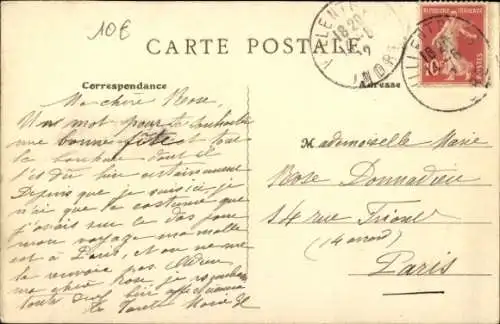 10€
CARTE POSTALE
Correspondance
Adresse
VILLENTROIS
18 20
INDRE
REPUBLIQUE FRANÇAISE
10
POSTES
Ma chère Rose,
Un mot pour te souhaiter
une bonne fête et tout
le bonheur dont il
Depuis que je suis ici je
n'ai que le costume que
j'avais sur le dos pour
mon voyage ma malle
est à Paris, et on ne me
la renvoie pas. Adieu
ma chère Rose je
toute
ta Tante Marie
Mademoiselle Marie
Rose Donnadieu
14 rue
(14 arrond)
Paris